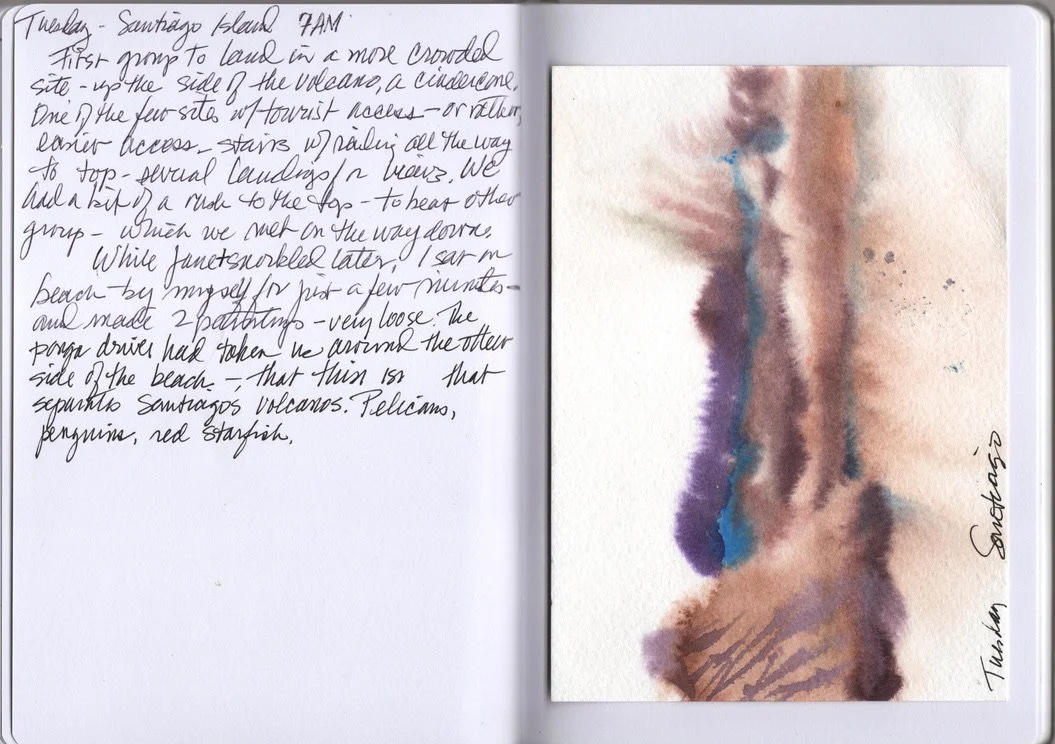 Tuesday - Santiago Island 7AM
First group to land in a more crowded
site - up the side of the volcano, a cindercone.
One of the few sites w/ tourist access - or rather,
easier access - stairs w/ railing all the way
to top - several landings for views. We
had a bit of a rush to the top - to beat other
group - which we met on the way down.
While Janet snorkled later, I sat on
beach - by myself for just a few minutes -
and made 2 paintings - very loose. The
panga driver had taken us around the other
side of the beach - that thin that
separates Santiagos volcanos. Pelicans,
penguins, red starfish.
Tuesday Santiago